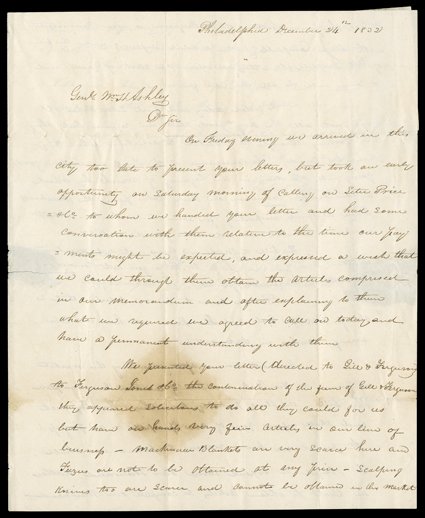 Philadelphia December 24th 1832
Genl Wm H Ashley
Dr Sir
On Friday evening we arrived in this
city too late to present your letters, but took an early
opportunity on Saturday morning of Calling on Price
= & Co to whom we handed your letter and had some
conversation with them relative to the time our Pay
= ments might be expected, and expressed a wish that
we could through them obtain the articles comprised
in our Memorandum and after explaining to them
what we required we agreed to call on today, and
have a permanent understanding with them
We presented your letter (directed to Gill & Ferguson
to Ferguson Jones & Co the continuation of the firm of Gill & Ferguson
they appeared solicitous to do all they could for us
but have on hands very few articles in our line of
business – Mackinaw Blankets are very scarce here and
Fuzees are not to be obtained at any price – Scalping
Knives too are scarce and cannot be obtained in this market